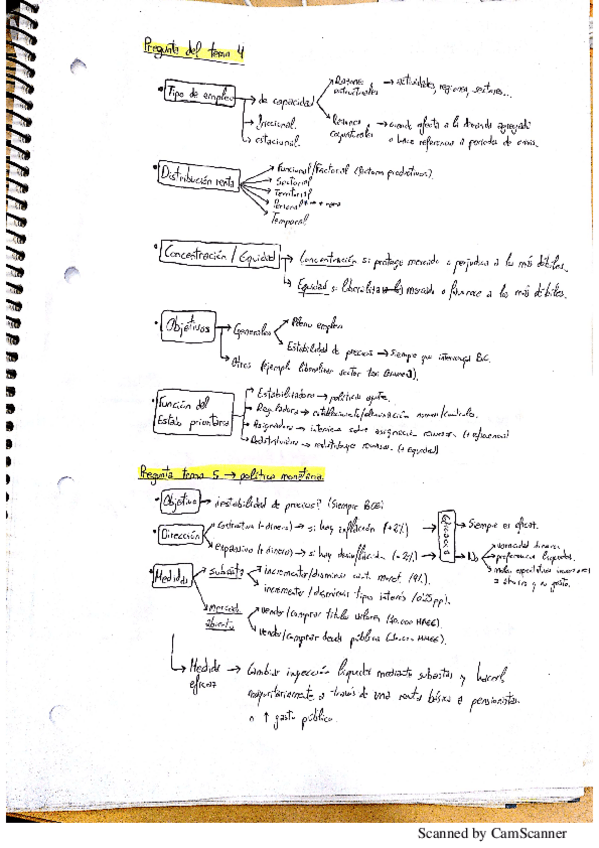 Pregunta del tema 4
• Tipo de empleo → de capacidad → Razones estructurales → actividades, regiones, sectores...
→ Razones coyunturales → cuando afecta a la demanda agregada
o hace referencia a periodos de crisis.
→ friccional.
→ estacional.
• Distribución renta → Funcional/Factorial (factores productivos).
→ Sectorial
→ Territorial
→ Personal
→ Temporal
• Concentración / Equidad → Concentración si protege mercado o perjudica a los más débiles.
→ Equidad si liberaliza mercado o favorece a los más débiles.
• Objetivos → Generales → Pleno empleo
→ Estabilidad de precios → Siempre que intervenga BCE.
→ Otros (ejemplo liberalizar sector
• Función del Estado prioritaria → Estabilizadora → políticas ajuste.
→ Reguladora → establecimiento/eliminación normas/controles.
→ Asignadora → interviene sobre asignación recursos. (+ eficiencia)
→ Redistributiva → redistribuye recursos. (+ equidad)
Pregunta tema 5 → política monetaria.
• Objetivo → ¿estabilidad de precios? (Siempre BCE)
• Dirección → contractiva (- dinero) → si hay inflación (+2%)
→ expansiva (+ dinero) → si hay desinflación (-2%)
Eficacia → Siempre es eficaz.
→ No → velocidad dinero.
→ preferencia liquidez.
→ malas expectativas inversores
→ ahorro y no gasto.
• Medidas → subasta → incrementar/disminuir cant. maret. (9%).
→ incrementar/disminuir tipos interés (0.25pp).
→ mercado abierto → vender/comprar títulos valores
→ vender/comprar deuda pública
→ Medida eficaz → Cambiar inyección liquidez mediante subastas y hacerl
mayoritariamente a través de una renta básica a pensionistas.
↑ gasto público.
Scanned by CamScanner